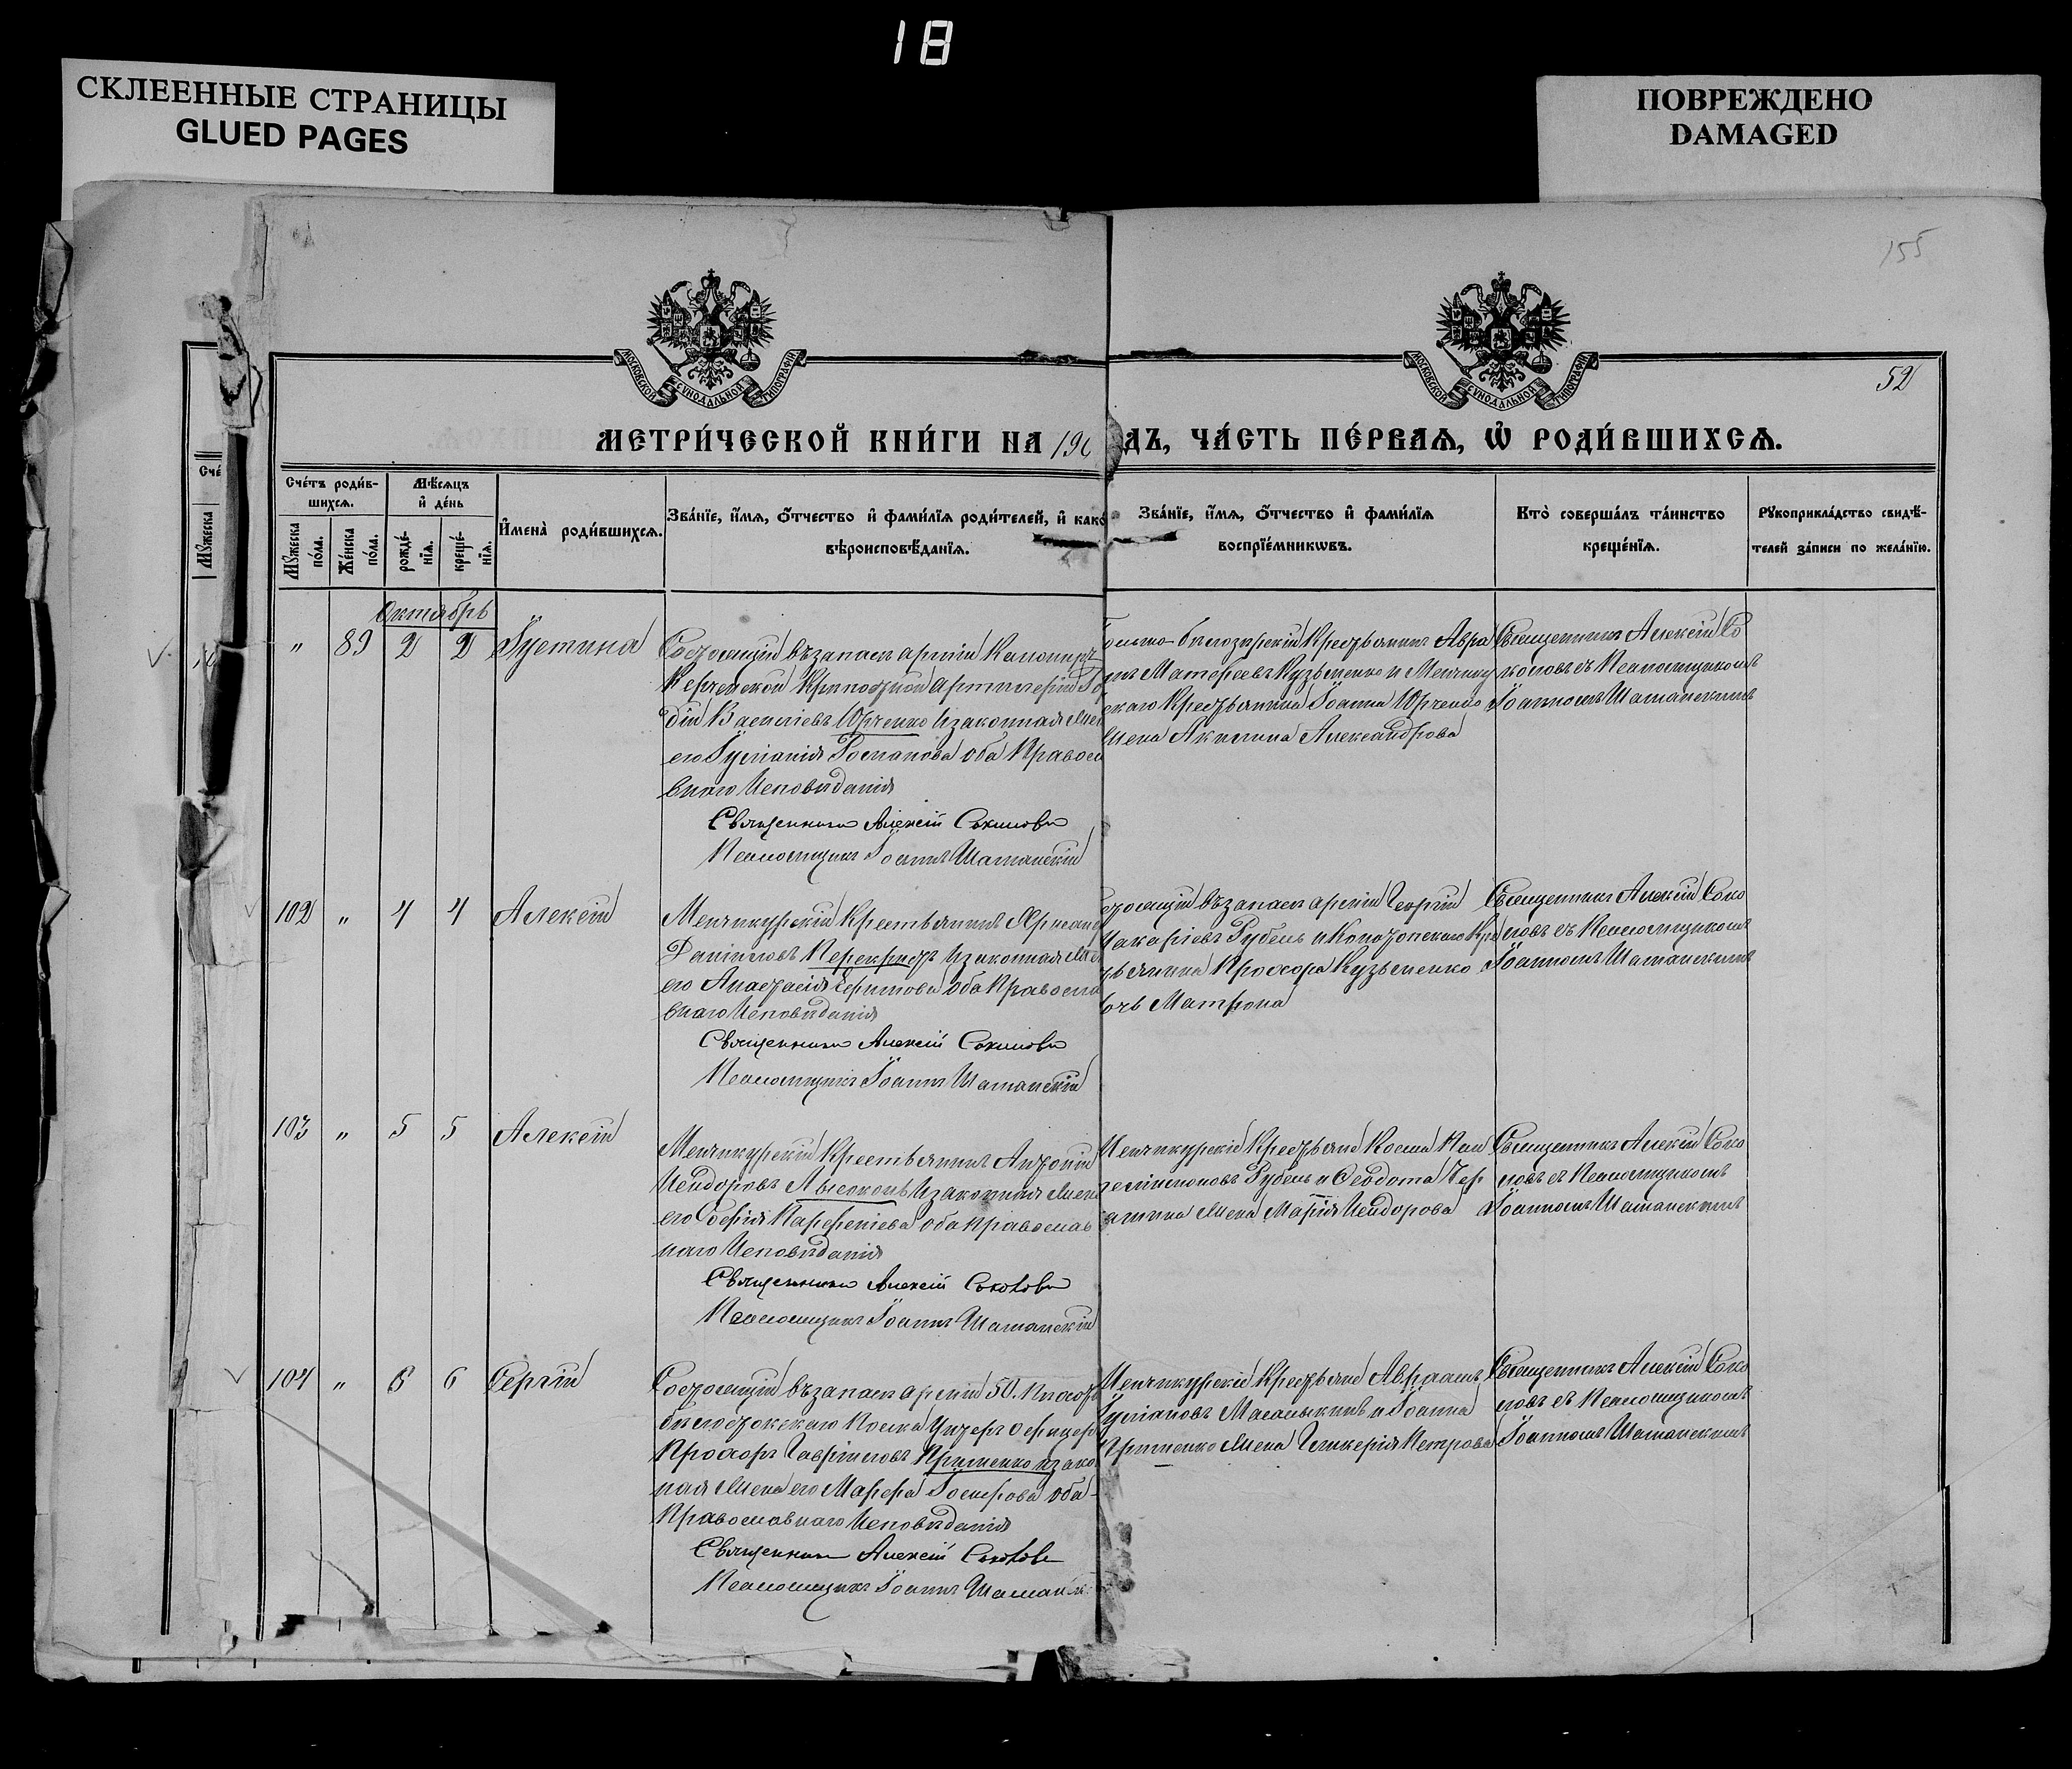 18
СКЛЕЕННЫЕ СТРАНИЦЫ
GLUED PAGES
ПОВРЕЖДЕНО
DAMAGED
155
МОСКОВСКОЙ СѴНОДАЛЬНОЙ ТИПОГРАФІИ
МОСКОВСКОЙ СѴНОДАЛЬНОЙ ТИПОГРАФІИ
52
МЕТРИ́ЧЕСКОЙ КНИ́ГИ НА 190 ДЪ, ЧА́СТЬ ПЕ́РВАѦ, Ѡ҆ РОДИ́ВШИХСѦ.
Сче́
Мꙋжеска
Сче́тъ роди́в-
шихсѧ.
Мꙋжеска
по́ла.
Же́нска
по́ла.
Мѣ́сѧцъ
и҆ де́нь
рожде́-
нїѧ.
креще́-
нїѧ.
И҆мена̀ роди́вшихсѧ.
Зва́нїе, и҆́мѧ, о҆́тчество и҆ фами́лїѧ роди́телей, и҆ како
вѣроисповѣ́данїѧ.
Зва́нїе, и҆́мѧ, о҆́тчество и҆ фами́лїѧ
воспрїе́мникѡвъ.
Кто̀ соверша́лъ та́инство
креще́нїѧ.
Рꙋкоприкла́дство свидѣ́-
телей за́писи по жела́нїю.
Октябрь
" 89 2 2 Іустина
Состоящій въ запасѣ арміи Канониръ
Керченской Крѣпостной Артиллеріи
Васильевъ Юрченко и законная
его Іуліанія Романова оба Правосл
внаго Исповѣданія
Священникъ Алексій Соколовъ
Псаломщикъ Іоаннъ Шаманскій
бѣлозерскій Крестьянинъ Авра
мъ Матвѣевъ Кузьменко и Менчику
скаго Крестьянина Іоанна Юрченко
жена Акилина Александрова
Священникъ Алексій Со
коловъ съ Псаломщикомъ
Іоанномъ Шаманскимъ
102 " 4 4 Алексій
Менчикурскій Крестьянинъ
Даніиловъ Перекрестъ и законная
его Анастасія Ефимова оба Правосла
внаго Исповѣданія
Священникъ Алексій Соколовъ
Псаломщикъ Іоаннъ Шаманскій
стоящій въ запасѣ арміи Георгій
Макаріевъ Рубель и Конотопскаго Кре
стьянина Прохора Кузьменко
дочь Матрона
Священникъ Алексій Соко
ловъ съ Псаломщикомъ
Іоанномъ Шаманскимъ
103 " 5 5 Алексій
Менчикурскій Крестьянинъ Антоній
Исидоровъ Лысоконь и законная жена
его Софія Парфеніева оба Православ
наго Исповѣданія
Священникъ Алексій Соколовъ
Псаломщикъ Іоаннъ Шаманскій
Менчикурскіе Крестьяне Косма Пан
телімоновъ Рубель и Ѳеодота
жена Марія Исидорова
Священникъ Алексій Соко
ловъ съ Псаломщикомъ
Іоанномъ Шаманскимъ
104 " 6 6 Сергій
Состоящій въ запасѣ арміи 50.
бѣлостокскаго Полка Унтеръ офицеръ
Прохоръ Гавріиловъ Приженко и зако
ная жена его Марѳа Іосифова оба
Православнаго Исповѣданія
Священникъ Алексій Соколовъ
Псаломщикъ Іоаннъ Шаманск
Менчикурскіе Крестьяне Авраамъ
Іуліановъ Масалыкинъ и Іоанна
жена Гликерія Петрова
Священникъ Алексій Соко
ловъ съ Псаломщикомъ
Іоанномъ Шаманскимъ